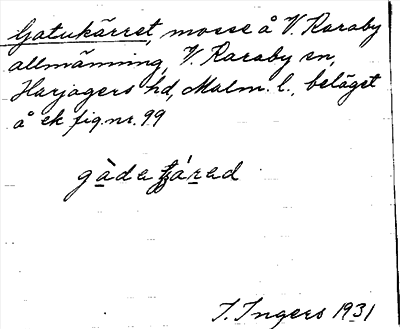 Gatukärret, mosse å V. Karaby
allmänning, V. Karaby sn,
Harjagers hd, Malm. l., beläget
å ek fig.nr. 99
gàda ʈʂáʀad
I. Ingers 1931